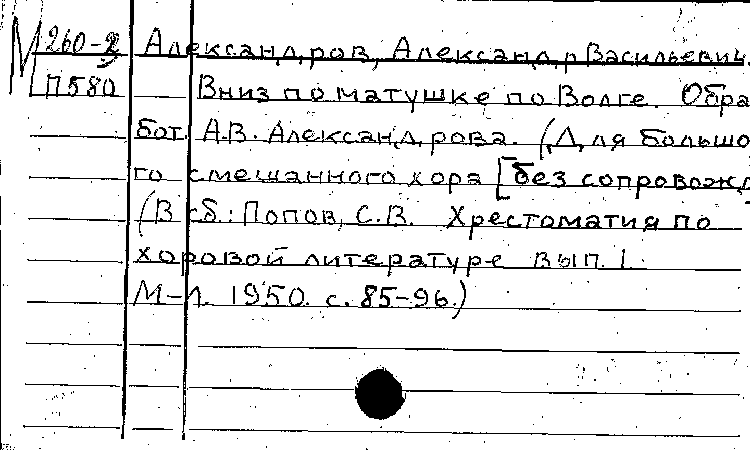 М 260-2 Александров, Александр Васильевич.
П580 Вниз по матушке по Волге. Обра
бот. А.В. Александрова. (Для большо
го смешанного хора [без сопровожд
(В сб.: Попов, С.В. Хрестоматия по
хоровой литературе вып. 1.
М-Л. 1950. с. 85-96.)